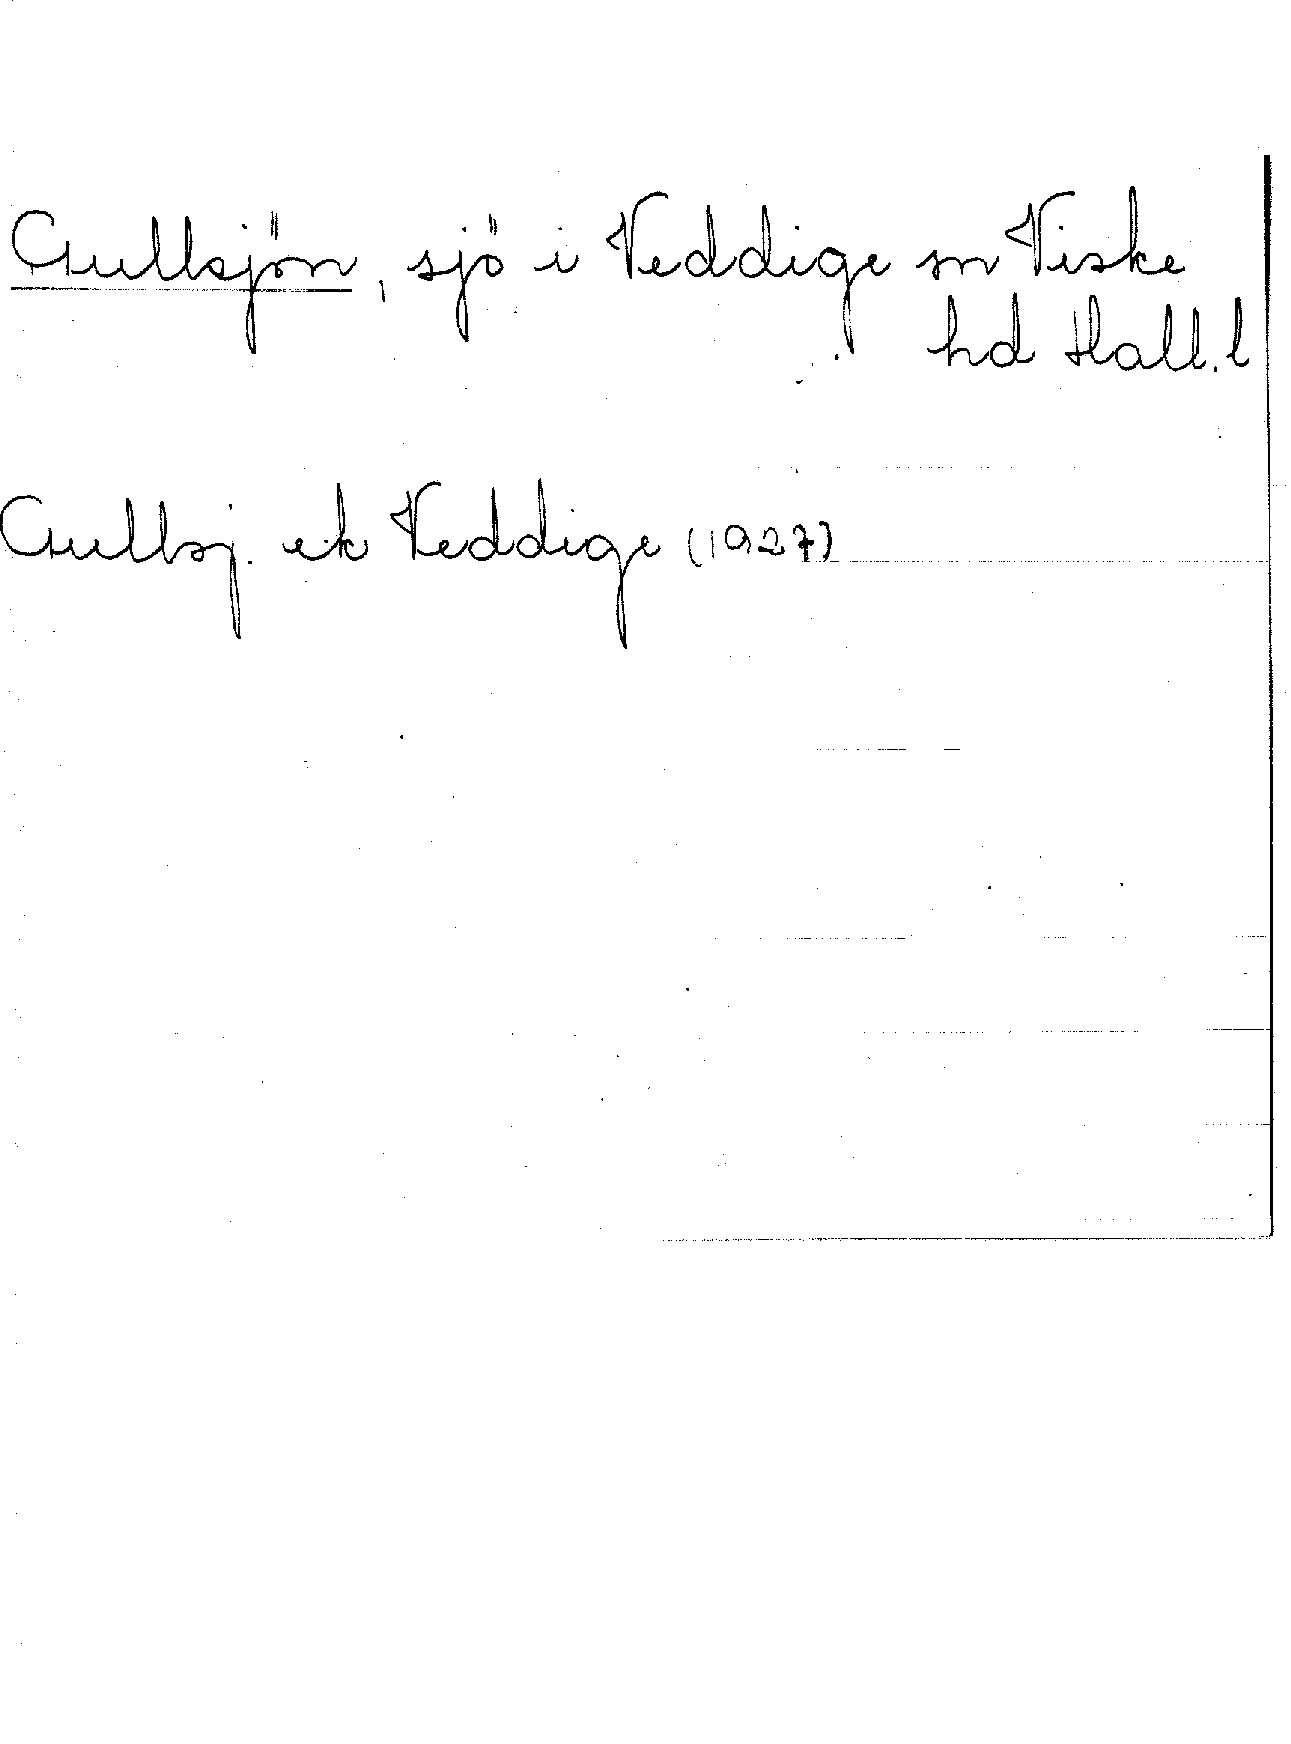 Gullsjön, sjö i Veddige sn Viske
hd Hall.l
Gullsj. ek Veddige (1927)